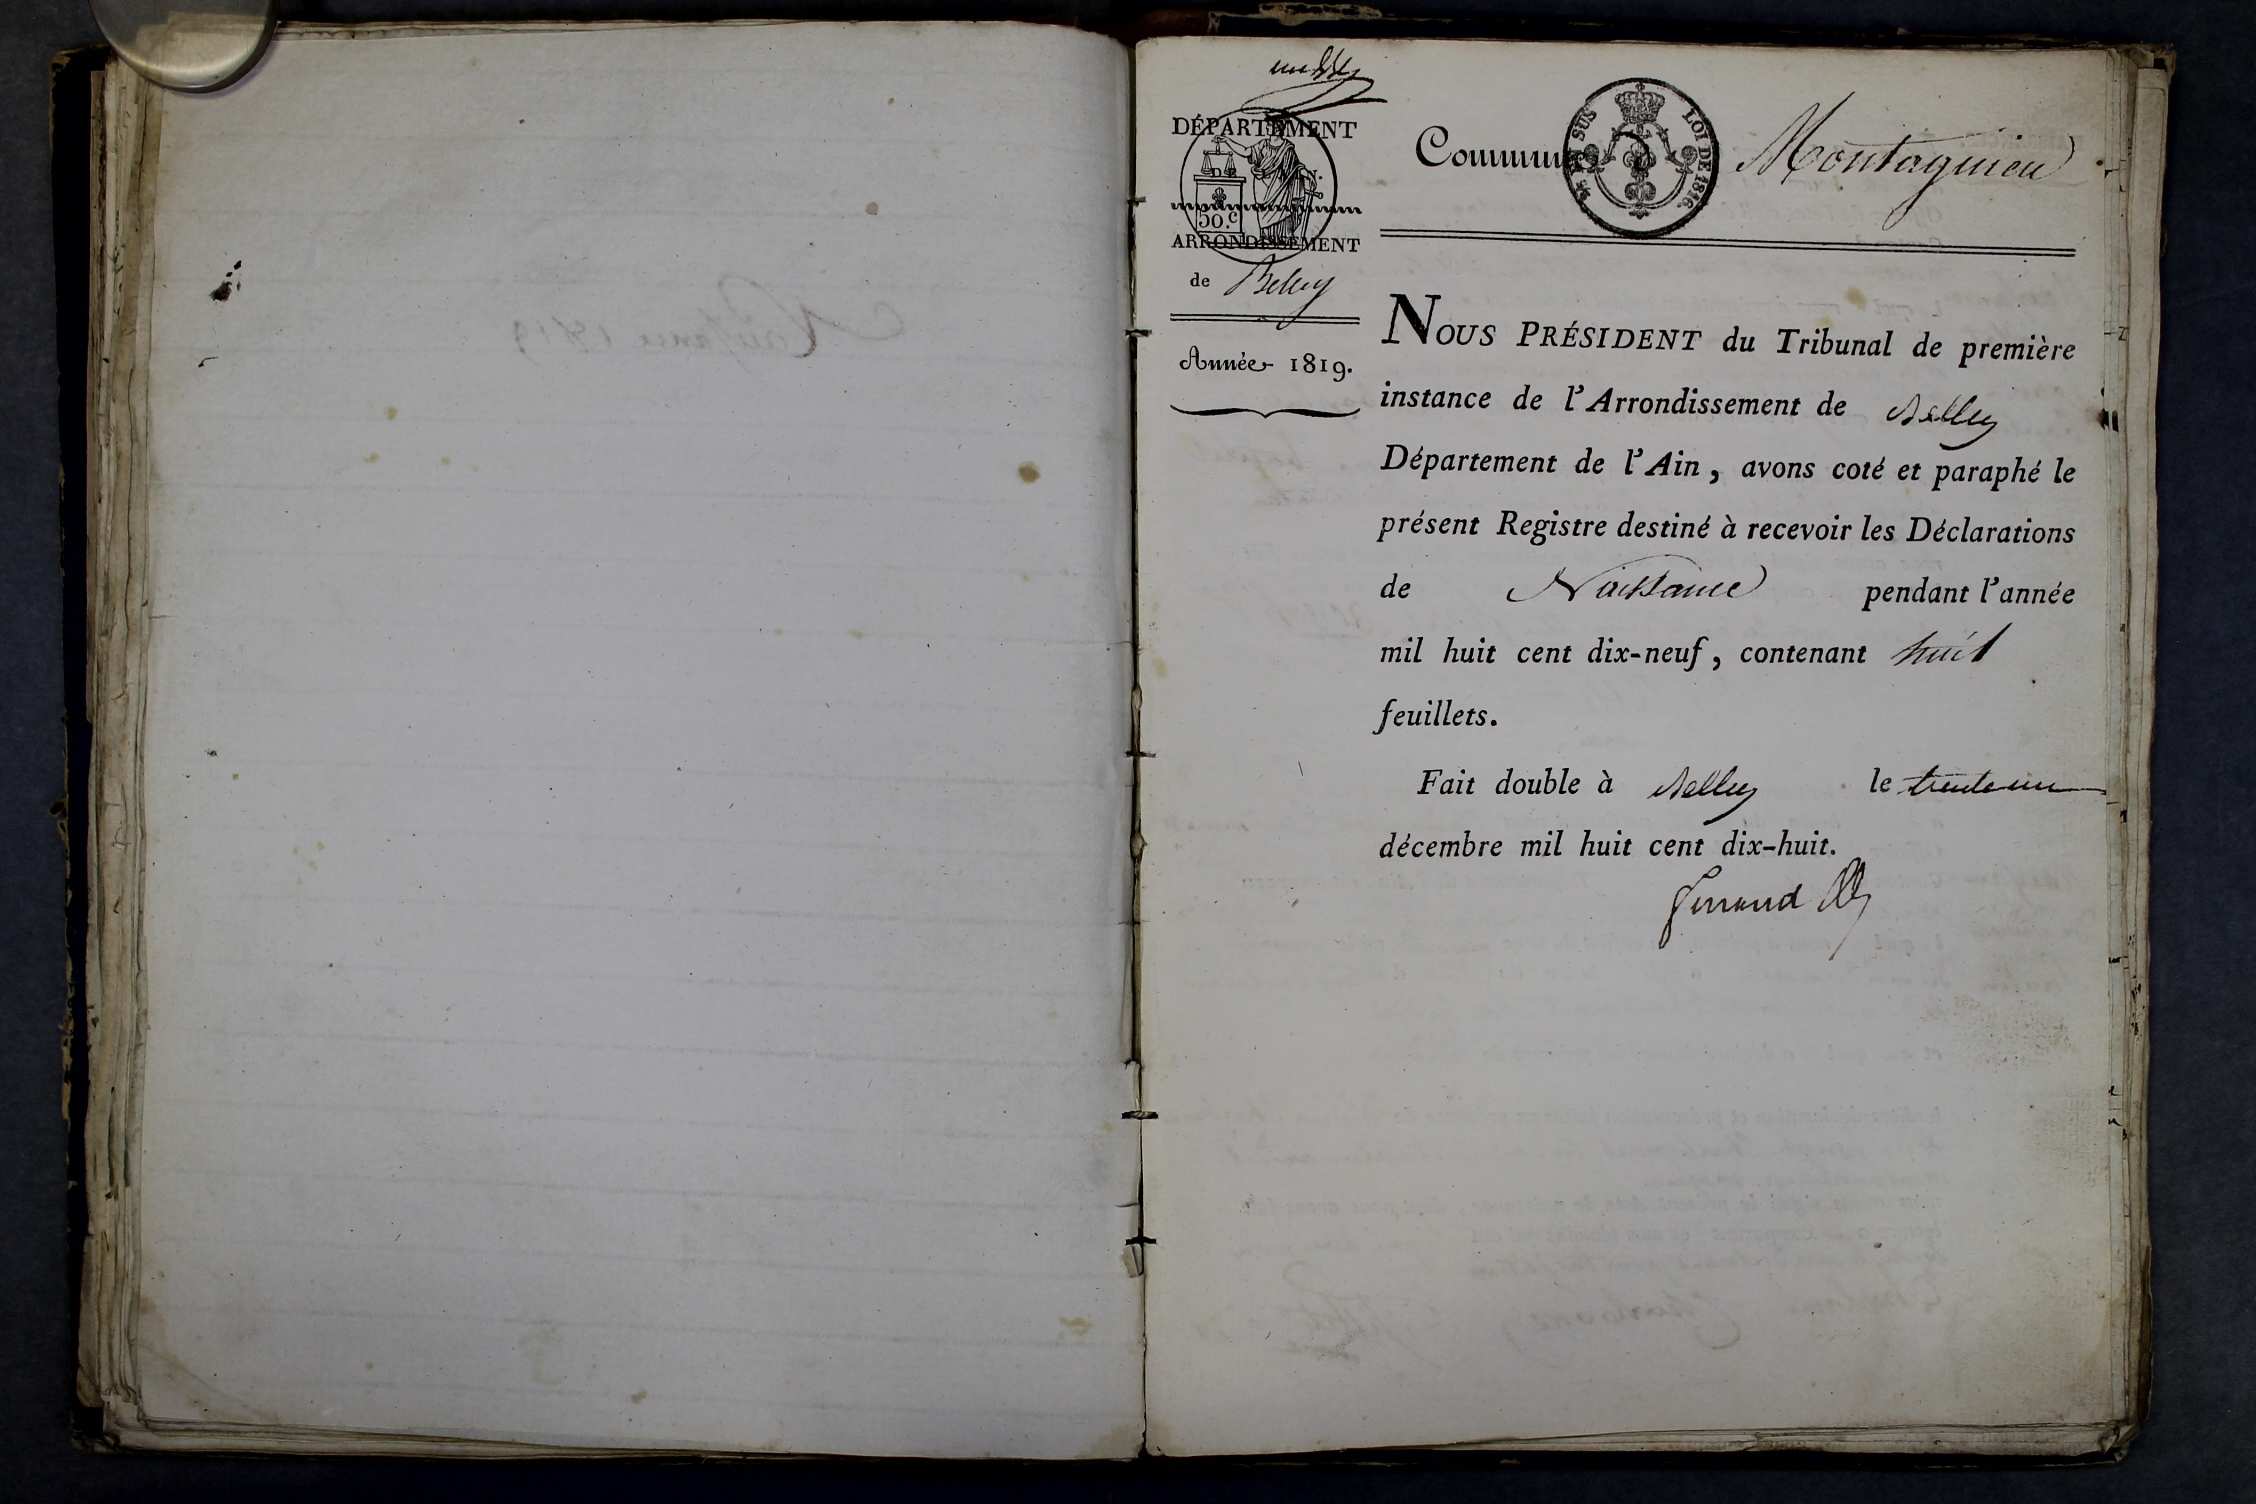 DÉPARTEMENT
50.c
ARRONDISSEMENT
de Belley
Année 1819.
Commune
EN SUS
LOI DE 1816.
Montagnieu
NOUS PRÉSIDENT du Tribunal de première
instance de l'Arrondissement de Belley
Département de l'Ain, avons coté et paraphé le
présent Registre destiné à recevoir les Déclarations
de Naissance pendant l'année
mil huit cent dix-neuf, contenant huit
feuillets.
Fait double à Belley le trente un
décembre mil huit cent dix-huit.